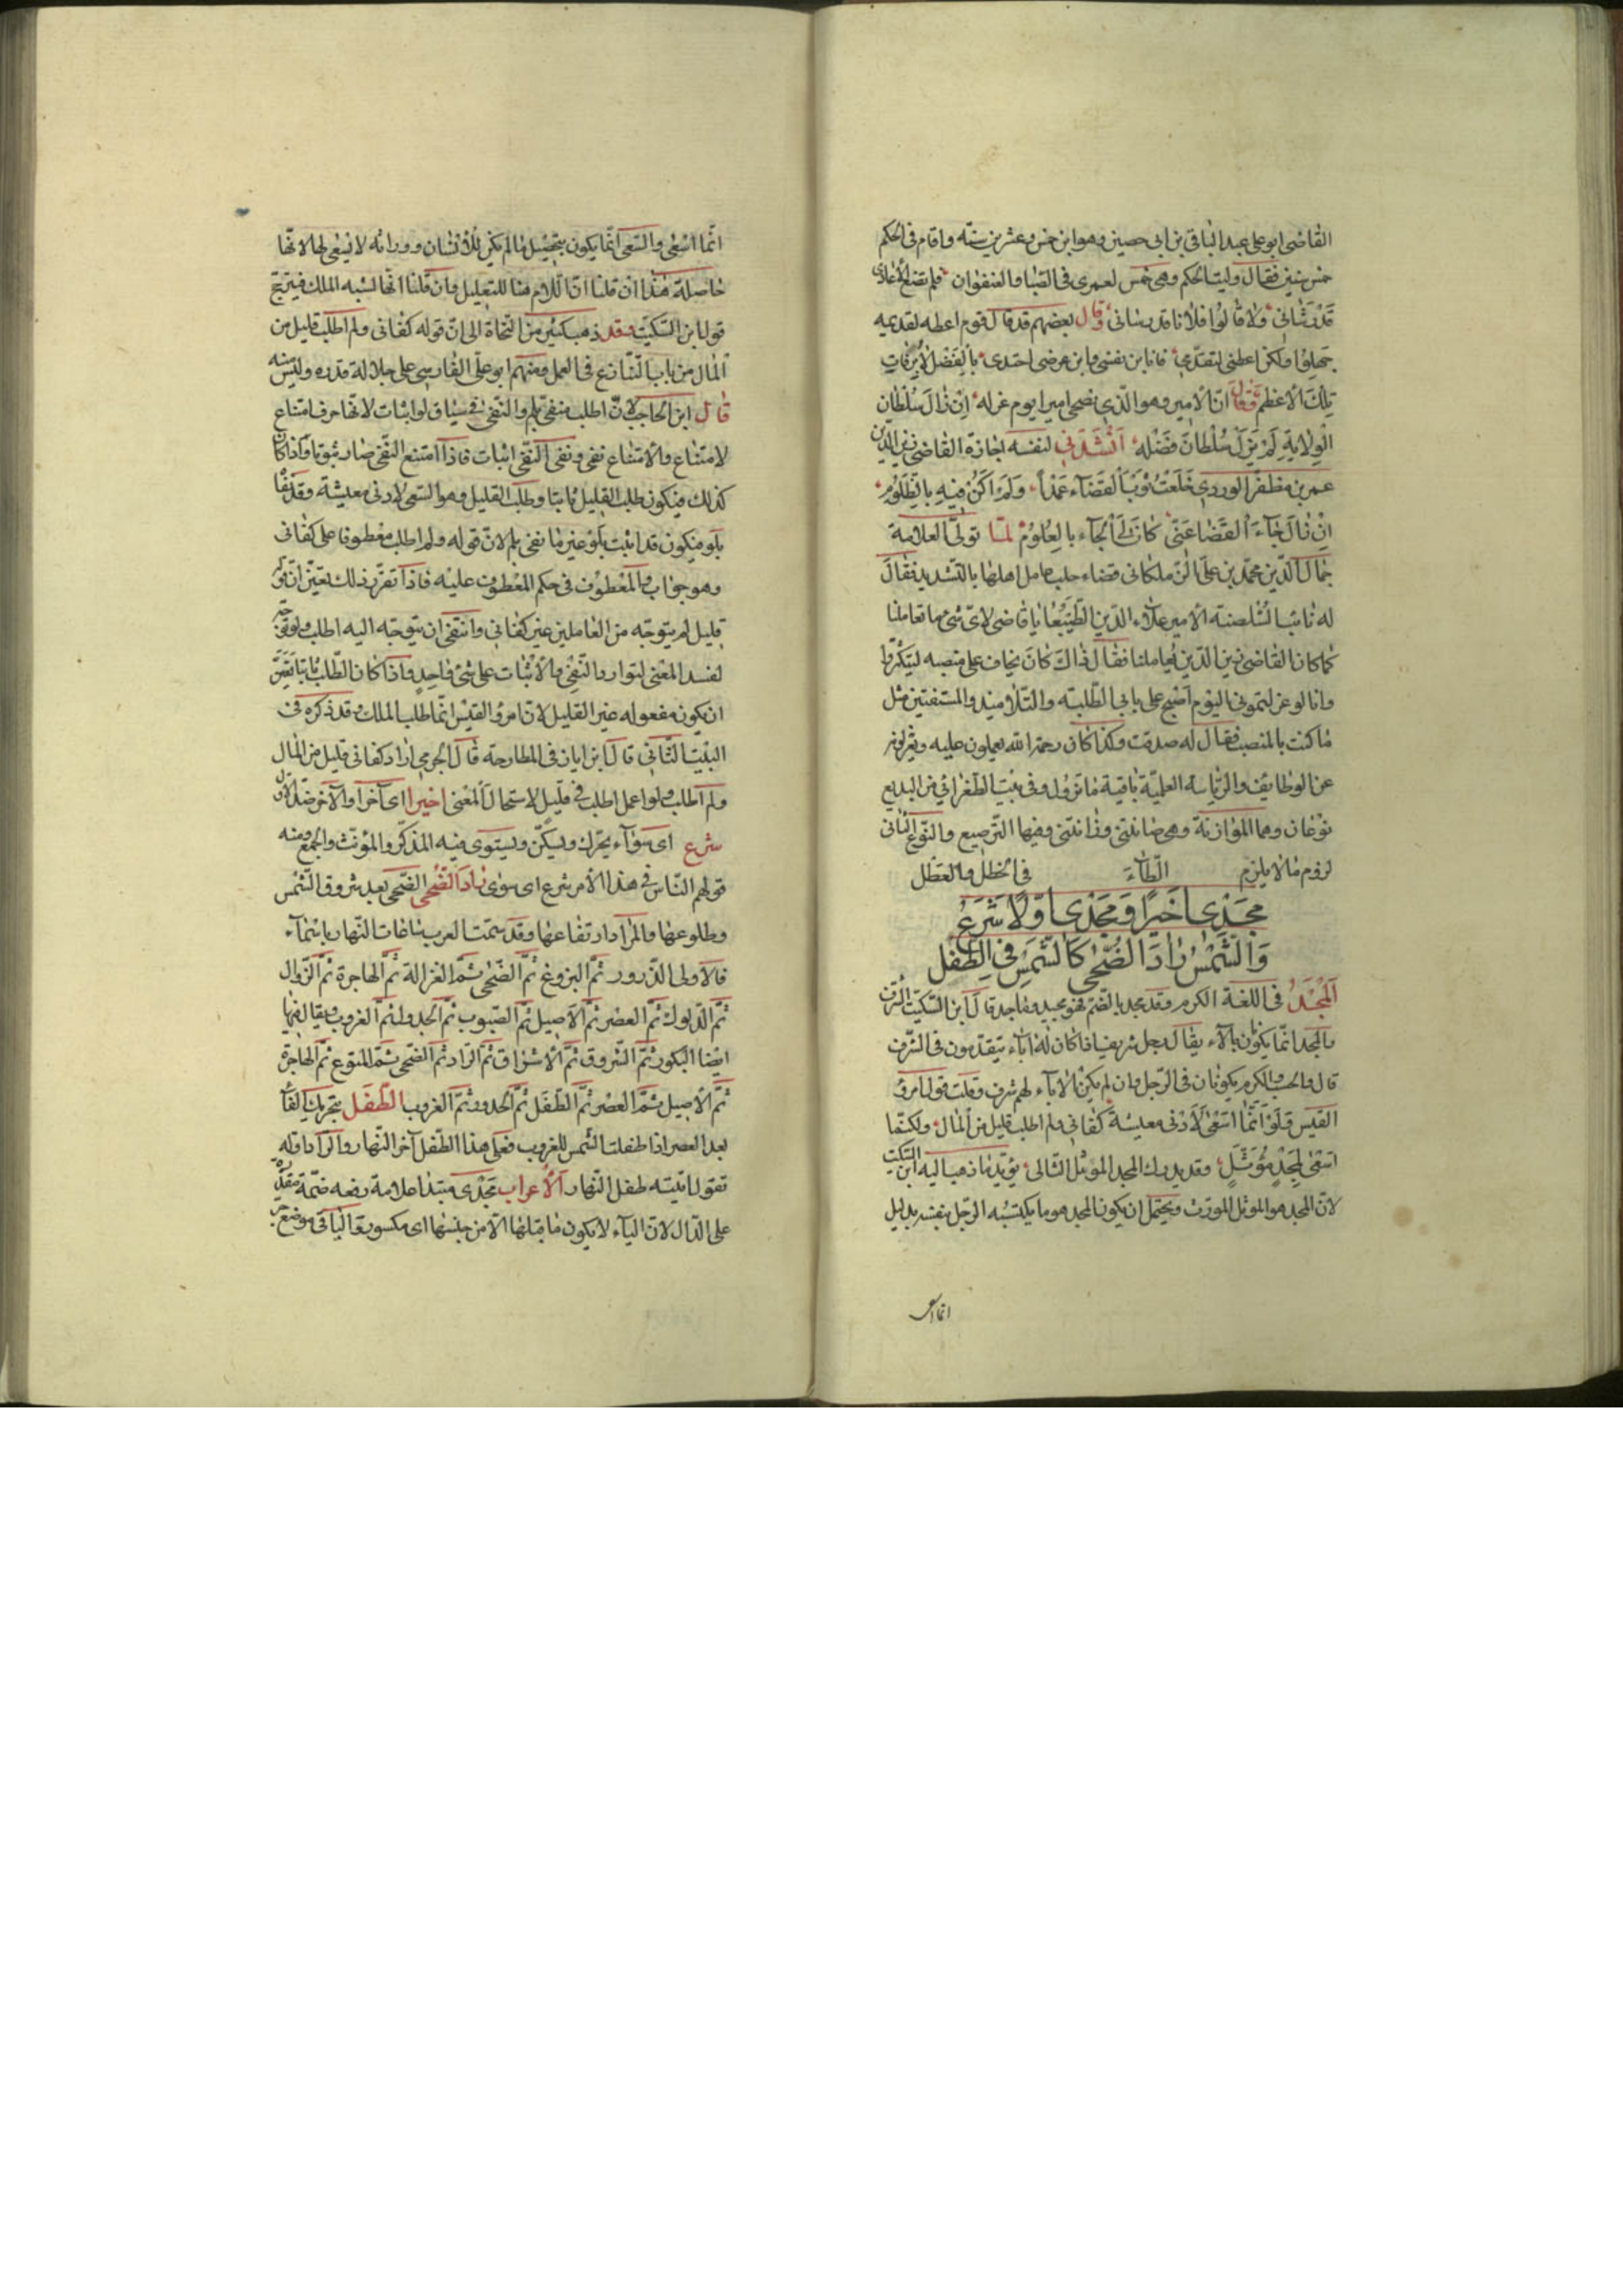 القاضى ابو على عبد الباقى بن ابى حصين وهو ابن خمس وعشرين سنة واقام فى الحكم
خمس سنين فقال وليت الحكم وهى خمس لعمرى فى الصبا والعنفوان فلم تضع الاعادى
قدر شانى ولا قالوا فلانا قد رشانى وقال بعضهم قد قال قوم اعطه لقديمه
جهلوا ولكن اعطنى لتقدمى فانا ابن نفسى لا ابن عرضى احتدى بالفضل لا برفات
تلك الاعظم وقال ان الامير هو الذى يضحى اميرا يوم عزله ان زال سلطان
الولاية لم يزل سلطان فضله انشدنى لنفسه اجازة القاضى زين الدين
عمر بن مظفر الوردى خلعت ثوب القضاء عمدا ولم اكن فيه بالظلوم
ان زال جاه القضا عنى كان لى الجاه بالعلوم لما تولى العلامة
جمال الدين محمد بن على الزملكانى قضاء حلب عامل اهلها بالتشديد فقال
له نائب السلطنة الامير علاء الدين الطنبغا يا قاضى لاى شئ ما تعاملنا
كما كان القاضى زين الدين يعاملنا فقال ذاك كان يخاف على منصبه
وانا لو عزلتمونى اليوم اصبح على بابى الطلبة والتلاميذ والمستفتين مثل
ما كنت بالمنصب فقال له صدقت وكذا كان رحمة الله يعملون عليه
عن الوظايف والرياسة العلية باقية ما تزول وفى بيت الطغرائى من البديع
نوعان وهما الموازنة وهى صانتنى وزانتنى وفيها الترصيع والنوع الثانى
لزوم ما لا يلزم الطاء فى الخطل والعطل
مجدى اخيرا ومجدى اولا شرع
والشمس راد الضحى كالشمس فى الطفل
المجد فى اللغة الكرم وقد مجد بالضم فهو مجيد وماجد قال ابن السكيت الشرف
والمجد انما يكون بالآباء يقال رجل شريف اذا كان له اباء يتقدمون فى الشرف
قال والحسب والكرم يكونان فى الرجل وان لم يكن لاباء لهم شرف وقلت قول امرؤ
القيس فلو انما اسعى لادنى معيشة كفانى ولم اطلب قليل من المال ولكنما
اسعى لمجد مؤثل وقد يدرك المجد المؤثل امثالى يؤيد ما ذهب اليه ابن السكيت
لان المجد هو المؤثل الموروث ويحتمل ان يكون المجد هو ما يكتسبه الرجل بنفسه بدليل
انما اسعى
انما اسعى والسعى انما يكون بتحصيل ما لم يكن للانسان ووراثه لا يسعى لها لانها
حاصلة هذا ان قلنا ان اللام هنا للتعليل وان قلنا انها لشبه الملك فيترجح
قول ابن السكيت وقد ذهب كثير من النحاة الى ان قوله كفانى ولم اطلب قليل من
المال من باب التنازع فى العمل ومنهم ابو على الفارسى على جلالة قدره وليس منه
قال ابن الحاجب لان اطلب منفى بلم والنفى فى سياق لو اثبات لانها حرف امتناع
لامتناع والامتناع نفى ونفى النفى اثبات فاذا امتنع النفى صار ثبوتا واذا كان
كذلك فيكون طلب القليل ثابتا وطلب القليل وهو السعى لادنى معيشة وقد نفا
بلو فيكون قد اثبت بلو عين ما نفى بلم لان قوله ولم اطلب معطوفا على كفانى
وهو جواب والمعطوف فى حكم المعطوف عليه فاذا تقرر ذلك يتعين ان قوله
قليل لم يتوجه من العاملين غير كفانى وانتفى ان يتوجه اليه اطلب ولو توجه
لفسد المعنى لتوارد النفى والاثبات على شئ واحد واذا كان الطلب ثابتا تعين
ان يكون مفعوله غير القليل لان امرؤ القيس انما طلب الملك وقد ذكره فى
البيت الثانى قال ابن اياز فى المطارحة قال الجرمى اراد كفانى قليل من المال
ولم اطلب ولو اعمل اطلب فى قليل لاستحال المعنى اخيرا اى آخرا والآخر ضد الاول
شرع اى سواء يحرك ويسكن ويستوى فيه المذكر والمؤنث والجمع ومنه
قولهم الناس فى هذا الامر شرع اى سوى راد الضحى الضحى بعد شروق الشمس
وطلوعها والمراد ارتفاعها وقد سمت العرب ساعات النهار باسماء
فالاولى الذرور ثم البزوغ ثم الضحى ثم الغزالة ثم الهاجرة ثم الزوال
ثم الدلوك ثم العصر ثم الاصيل ثم الصبوب ثم الحدور ثم الغروب ويقال فيها
ايضا البكور ثم الشروق ثم الاشراق ثم الراد ثم الضحى ثم المتوع ثم الهاجرة
ثم الاصيل ثم العصر ثم الطفل ثم الحدور ثم الغروب الطفل بتحريك الفاء
بعد العصر اذا طفلت الشمس للغروب فعلى هذا الطفل آخر النهار والراد اوله
تقول اتيته طفل النهار الاعراب مجدى مبتدا علامة رفعه ضمة مقدرة
على الدال لان الياء لا يكون ما قبلها الا من جنسها اى مكسورة الباقى موضع